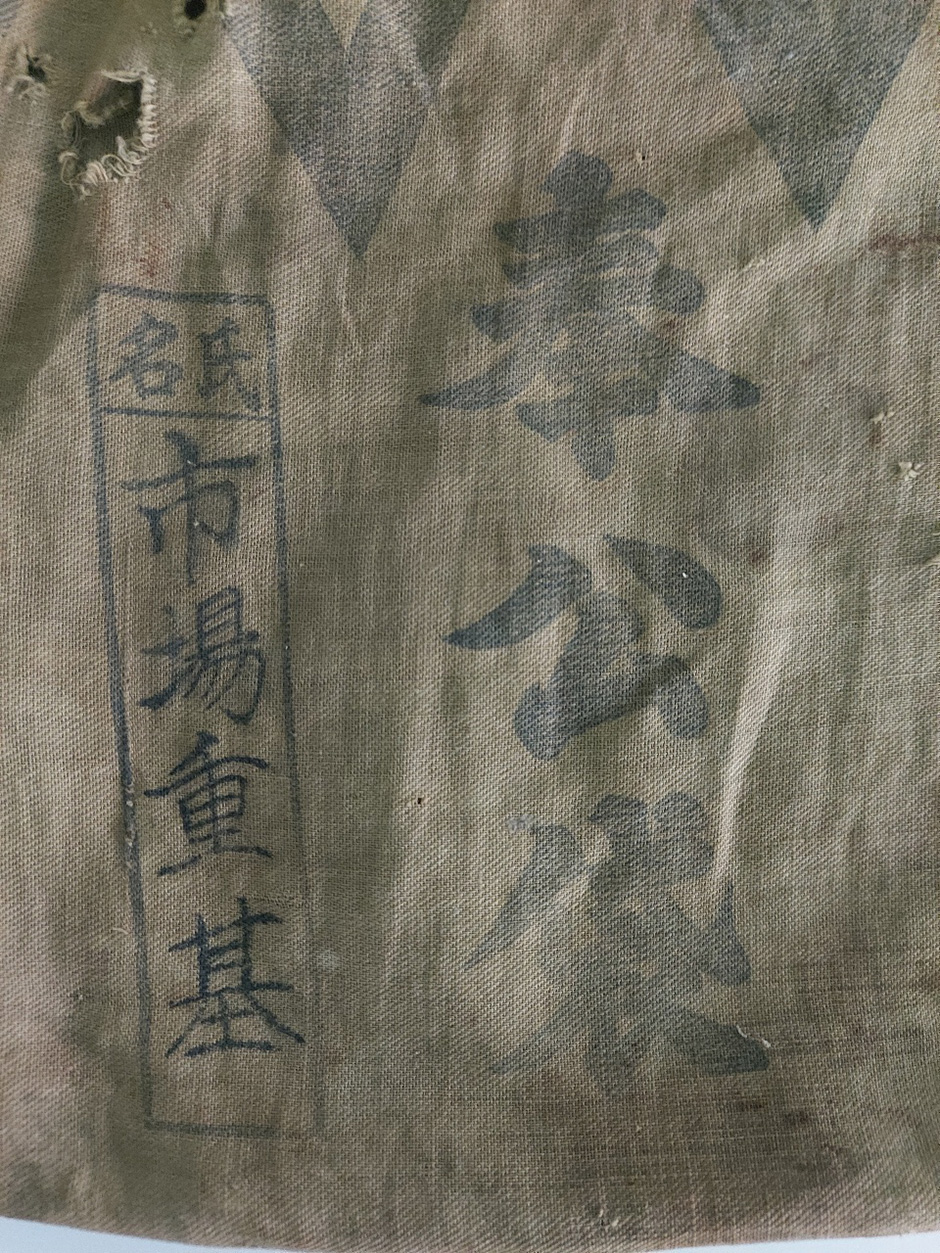 奉公袋
氏名
市場重基